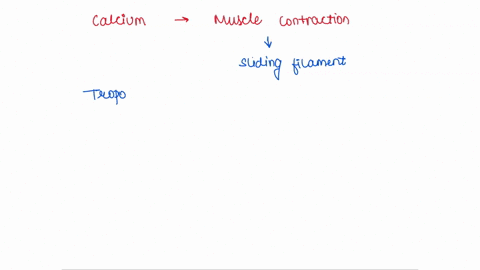 Calcium → Muscle contraction
↓
sliding filament
Tropo